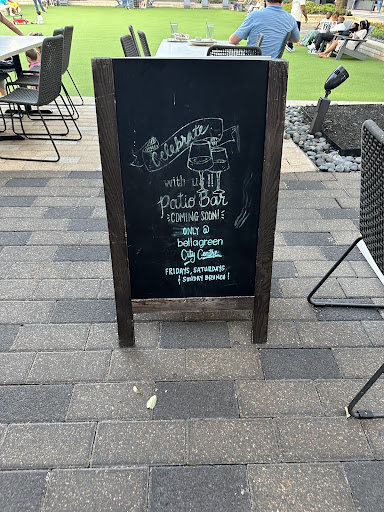 Celebrate
with us!!
Patio Bar
COMING SOON!
ONLY @
bellagreen
City Centre
FRIDAYS, SATURDAYS
& SUNDAY BRUNCH!